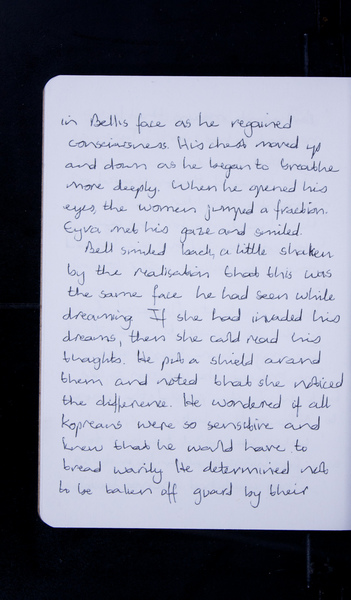 in Bell's face as he regained
consciousness. His chest moved up
and down as he began to breathe
more deeply. When he opened his
eyes, the women jumped a fraction.
Eyra met his gaze and smiled.
Bell smiled back, a little shaken
by the realisation that this was
the same face he had seen while
dreaming. If she had invaded his
dreams, then she could read his
thoughts. He put a shield around
them and noted that she noticed
the difference. He wondered if all
Kopreans were so sensitive and
knew that he would have to
tread warily. He determined not
to be taken off guard by their